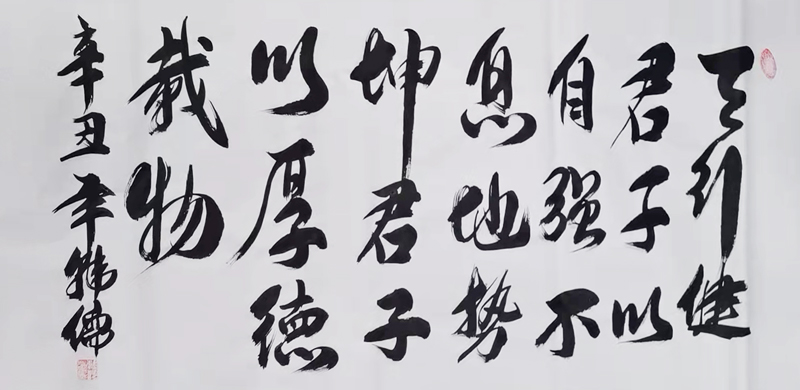 天行健
君子以
自强不
息地势
坤君子
以厚德
载物
辛丑年